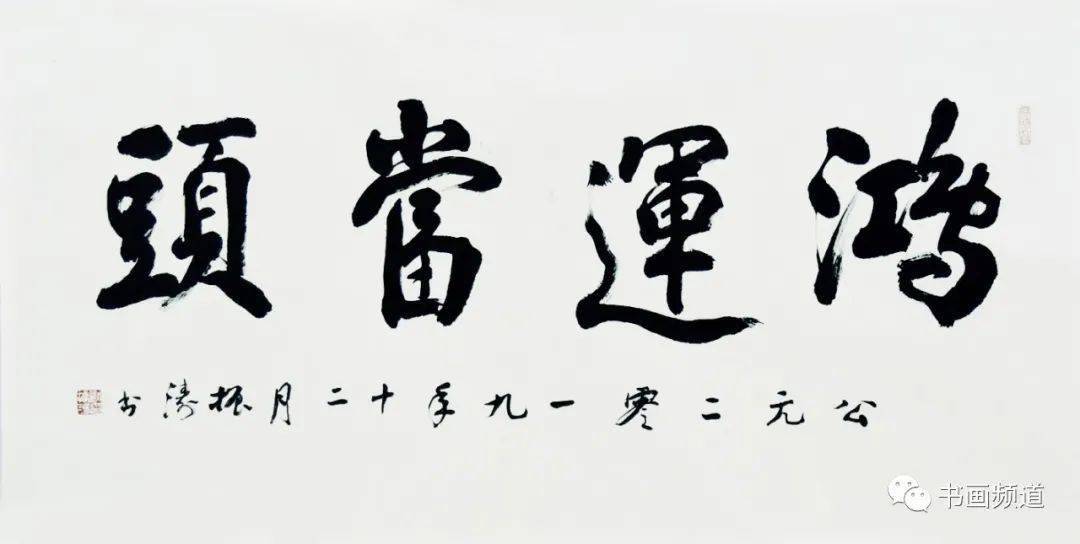 鴻運當頭
公元二零一九年十二月振濤书
书画频道